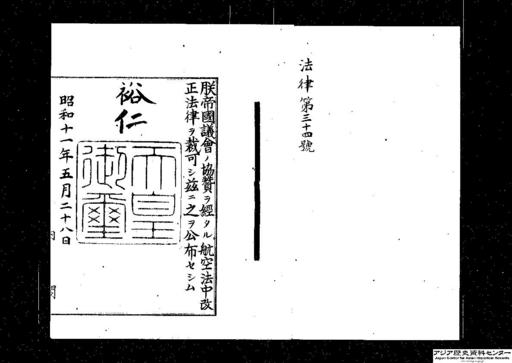 法律第三十四號
朕帝國議會ノ協贊ヲ經タル航空法中改
正法律ヲ裁可シ玆ニ之ヲ公布セシム
裕仁
天皇
御璽
昭和十一年五月二十八日
内閣
アジア歴史資料センター
Japan Center for Asian Historical Records